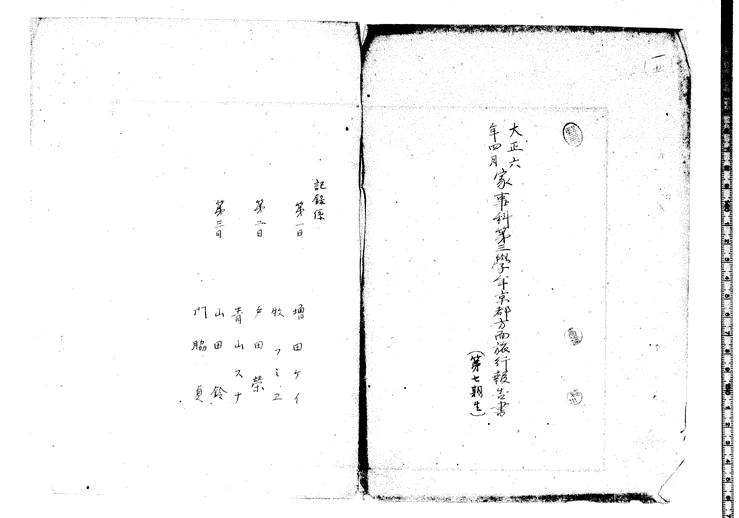 一五
大正六年四月家事科第三學年京都方面旅行報告書
(第七期生)
記録係
第一日 増田ケイ
牧フミヱ
第二日 戸田榮
青山スナ
第三日 山田鈴
門脇貞